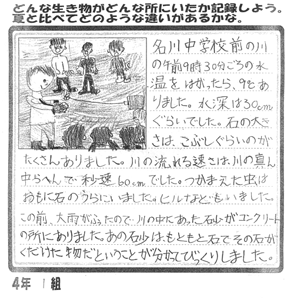 どんな生き物がどんな所にいたか記録しよう。
夏と比べてどのような違いがあるかな。
名川中学校前の川
の午前9時30分ごろの水
温をはかったら、9℃あ
りました。水深は30cm
ぐらいでした。石の大き
さは、こぶしぐらいのが
たくさんありました。川の流れる速さは川の真ん
中らへんで秒速60cmでした。つかまえた虫は
おもに石のうらにいました。ヒルなどもいました。
この前、大雨がふったので川の中にあった石砂がコンクリート
の所にありました。あの石砂は、もともと石でその石が
くだけた物だということが分かってびっくりしました。
4年 1組